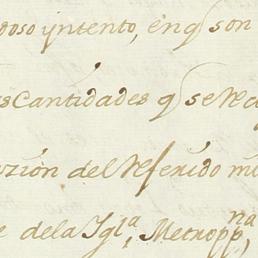 doso yntento, enq son
s Cantidades q se Rec
zion del Referido mo
e dela Ygl.ª Metropp.na